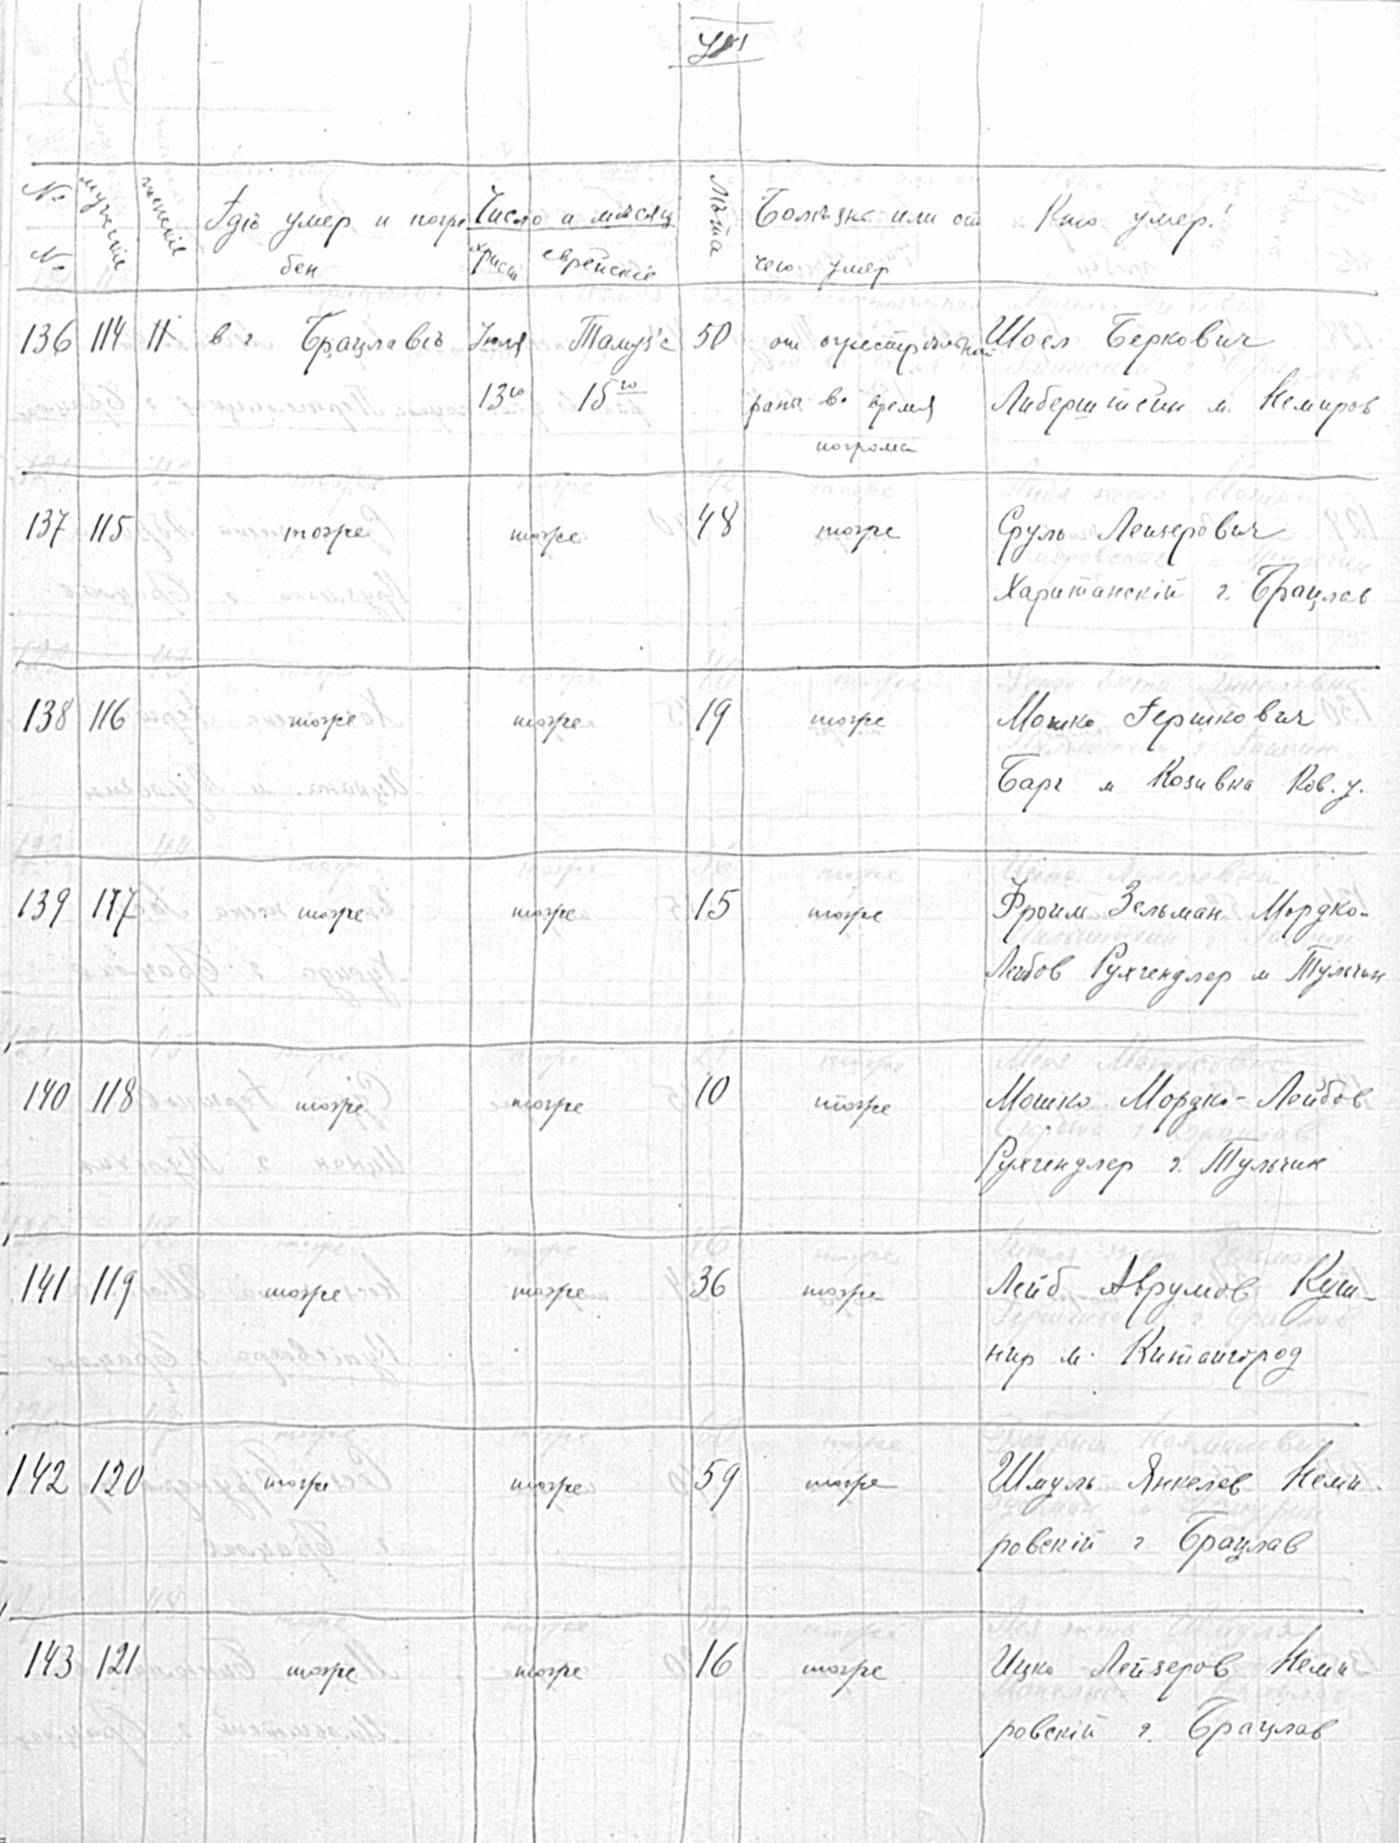 № №
мужскіе
женскіе
Гдѣ умер и погре
бен
Число и мѣсяц
христ
еврейскіе
Лѣта
Болѣзнь или от
чего умер
Кто умер!
136 114 11 в г Брацлавѣ Іюля Тамуз'с 50 от огнестрѣльной Шоел Беркович
13го 15го раны во время Либерштейн м. Немиров
погрома
137 115 тоже тоже 48 тоже Сруль Лейзерович
Хаританскій г. Брацлав
138 116 тоже тоже 19 тоже Мошко Гершкович
Барг м Козивка Ков. у.
139 117 тоже тоже 15 тоже Фроим Зельман Мордко-
Лейбов Рухгендлер м Тульчин
140 118 тоже тоже 10 тоже Мошко Мордко-Лейбов
Рухгендлер г. Тульчин
141 119 тоже тоже 36 тоже Лейб Аврумов Куш-
нир м. Китайгород
142 120 тоже тоже 59 тоже Шмуль Янкелев Неми-
ровскій г Брацлав
143 121 тоже тоже 16 тоже Ицко Лейзеров Неми
ровскій г. Брацлав